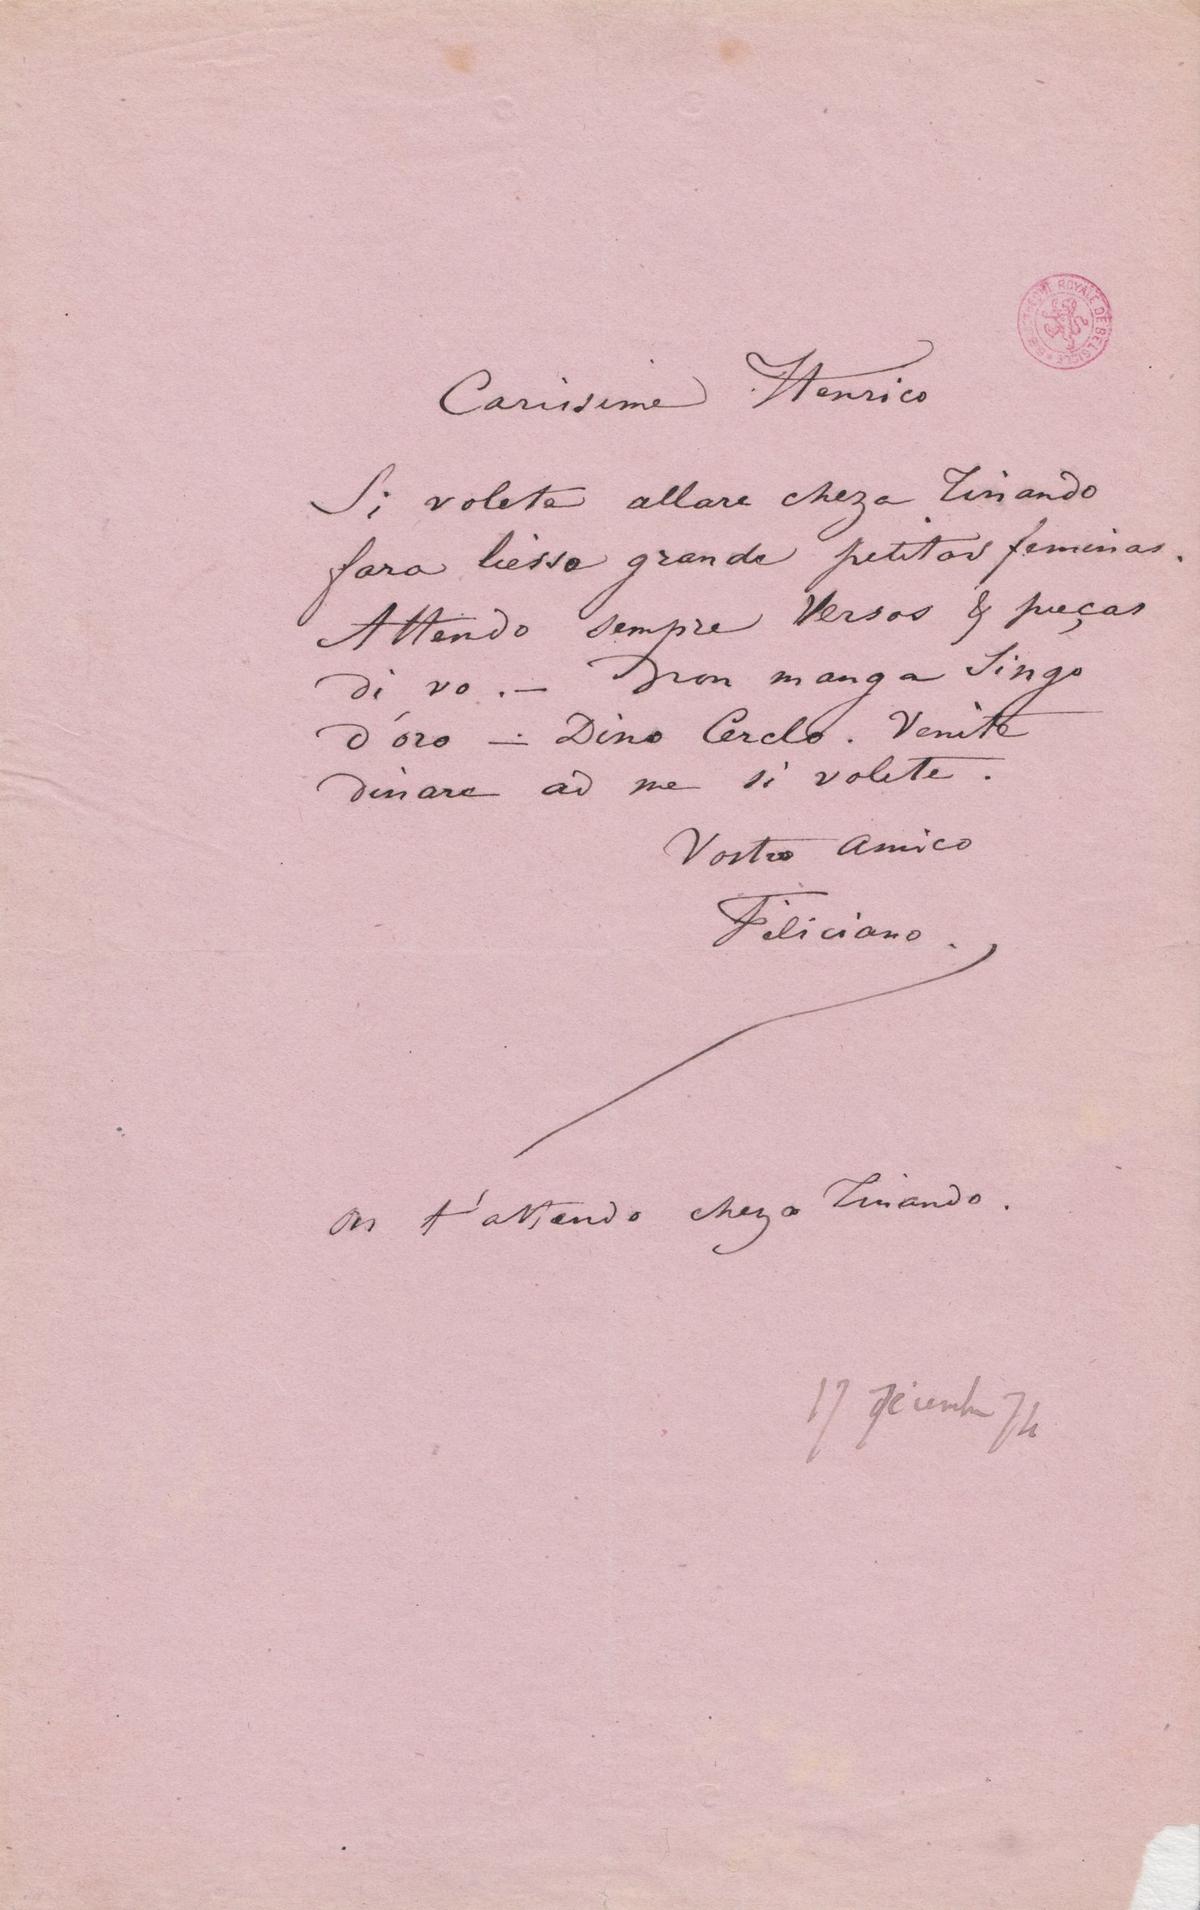 BIBLIOTHÈQUE ROYALE DE BELGIQUE
Carissime Henrico
Si volete allare cheza Tinando
fara liesse grande petitas feminas.
Attendo sempre Versos & pieças
di vo. — Dron manga Singo
d'oro — Dino Cerclo. Venite
dinare ad me si volete.
Vostro amico
Feliciano.
on t'attendo cheza Tinando.
17 Décembre 74